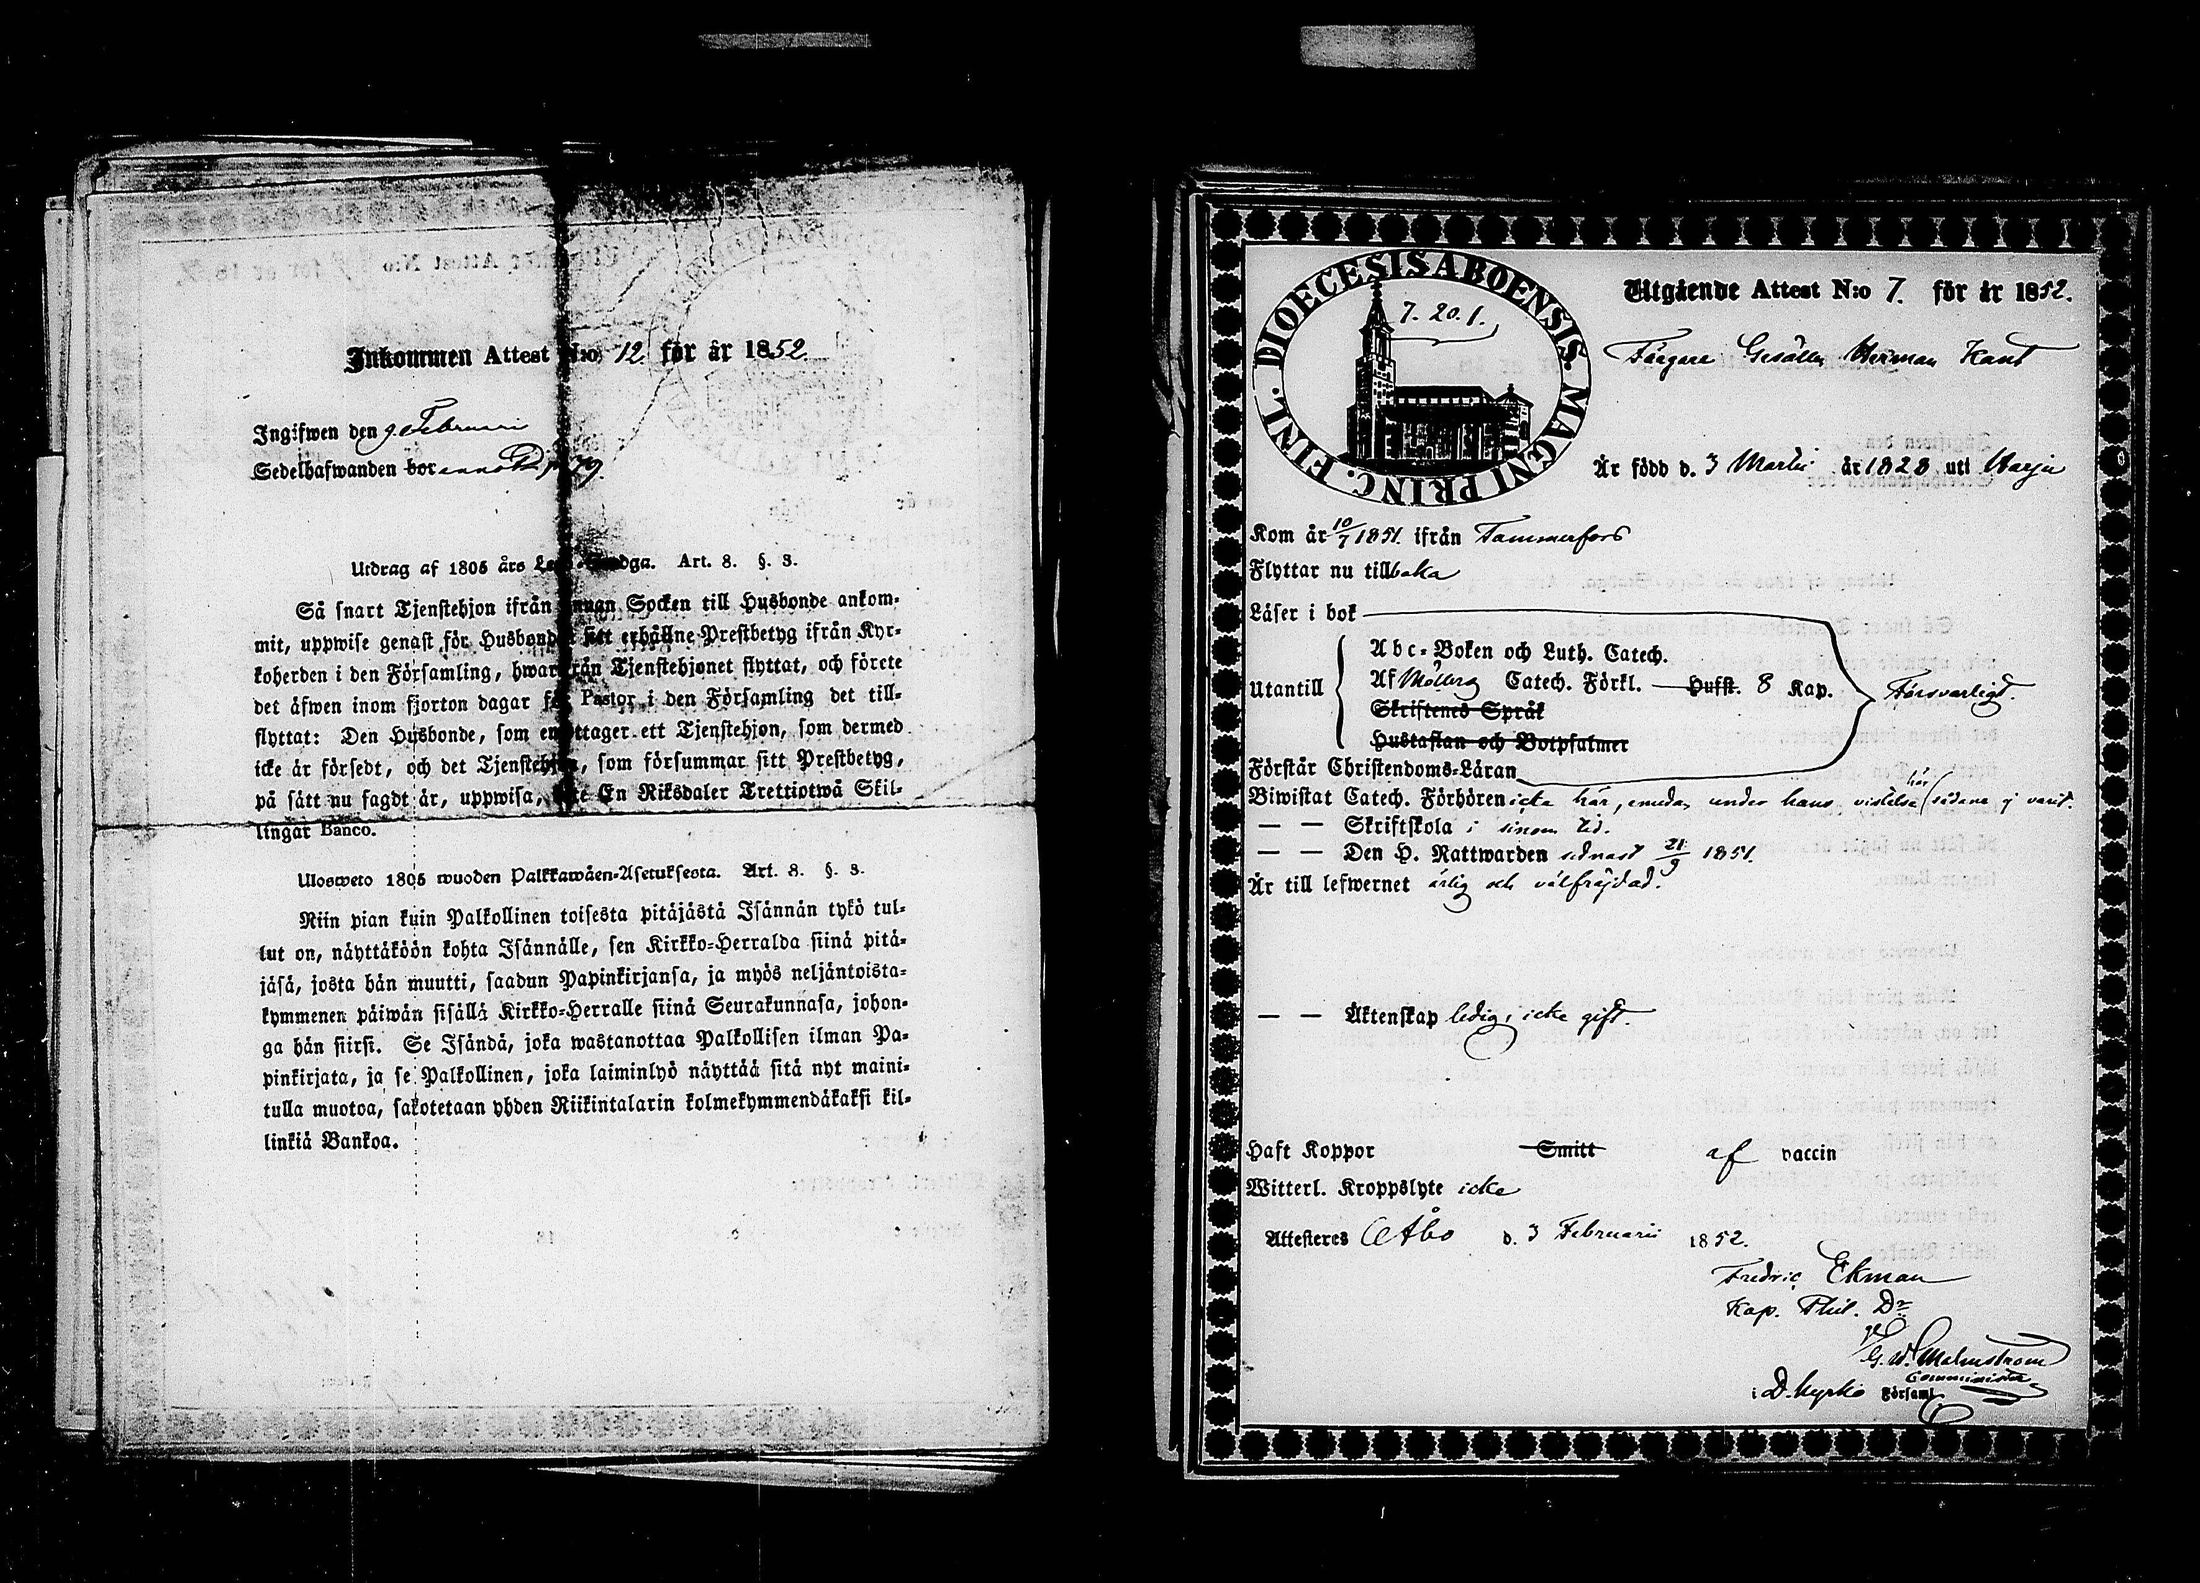 Inkommen Attest N:o 12 för år 1852.
Ingifwen den 9 Februari
Sedelhafwanden bor anno P. p. 79.
Utdrag af 1805 års Lego-Stadga. Art. 8. §. 3.
Så snart Tjenstehjon ifrån annan Socken till Husbonde ankom-
mit, uppwise genast för Husbonden sitt erhållne Prestbetyg ifrån Kyr-
koherden i den Församling, hwarifrån Tjenstehjonet flyttat, och förete
det äfwen inom fjorton dagar för Pastor i den Församling det till-
flyttat: Den Husbonde, som emottager ett Tjenstehjon, som dermed
icke är försedt, och det Tjenstehjon, som försummar sitt Prestbetyg,
på sätt nu sagdt är, uppwisa, böte En Riksdaler Trettiotwå Skil-
lingar Banco.
Ulosweto 1805 wuoden Palkkawäen-Asetuksesta. Art. 8. §. 3.
Niin pian kuin Palkollinen toisesta pitäjästä Isännän tykö tul-
lut on, näyttäköön kohta Isännälle, sen Kirkko-Herralda siinä pitä-
jäsä, josta hän muutti, saadun Papinkirjansa, ja myös neljäntoista-
kymmenen päiwän sisällä Kirkko-Herralle siinä Seurakunnasa, johon-
ga hän siirsi. Se Isändä, joka wastanottaa Palkollisen ilman Pa-
pinkirjata, ja se Palkollinen, joka laiminlyö näyttää sitä nyt maini-
tulla muotoa, sakotetaan yhden Riikintalarin kolmekymmendäkaksi kil-
linkiä Bankoa.
DIOECESIS ABOENSIS. MAGNI PRINC. FINL.
7. 20. 1.
Utgående Attest N:o 7. för år 1852.
Färgare Gesällen Herman Kant
Är född d. 3 Martii år 1828 uti Harju
Kom år 10/7 1851. ifrån Tammerfors
Flyttar nu tillbaka
Läser i bok
Utantill
Abc-Boken och Luth. Catech.
Af Möllers Catech. Förkl. Hufst. 8 Kap.
Skriftenes Språk
Hustaflan och Botpsalmer
Försvarligt.
Förstår Christendoms-Läran
Biwistat Catech. Förhören icke här, emedan under hans vistelse här sådana ej varit.
— — Skriftskola i sinom tid.
— — Den H. Nattwarden sednast 21/9 1851.
Är till lefwernet ärlig och välfräjdad.
— — Äktenskap ledig, icke gift.
Haft Koppor Smitt af vaccin
Witterl. Kroppslyte icke
Attesteres Åbo d. 3 Februarii 1852.
Fredric Ekman
Kap. Phil. Dr
G. W. Malmström
Comminister
i D. Kyrko Församl.